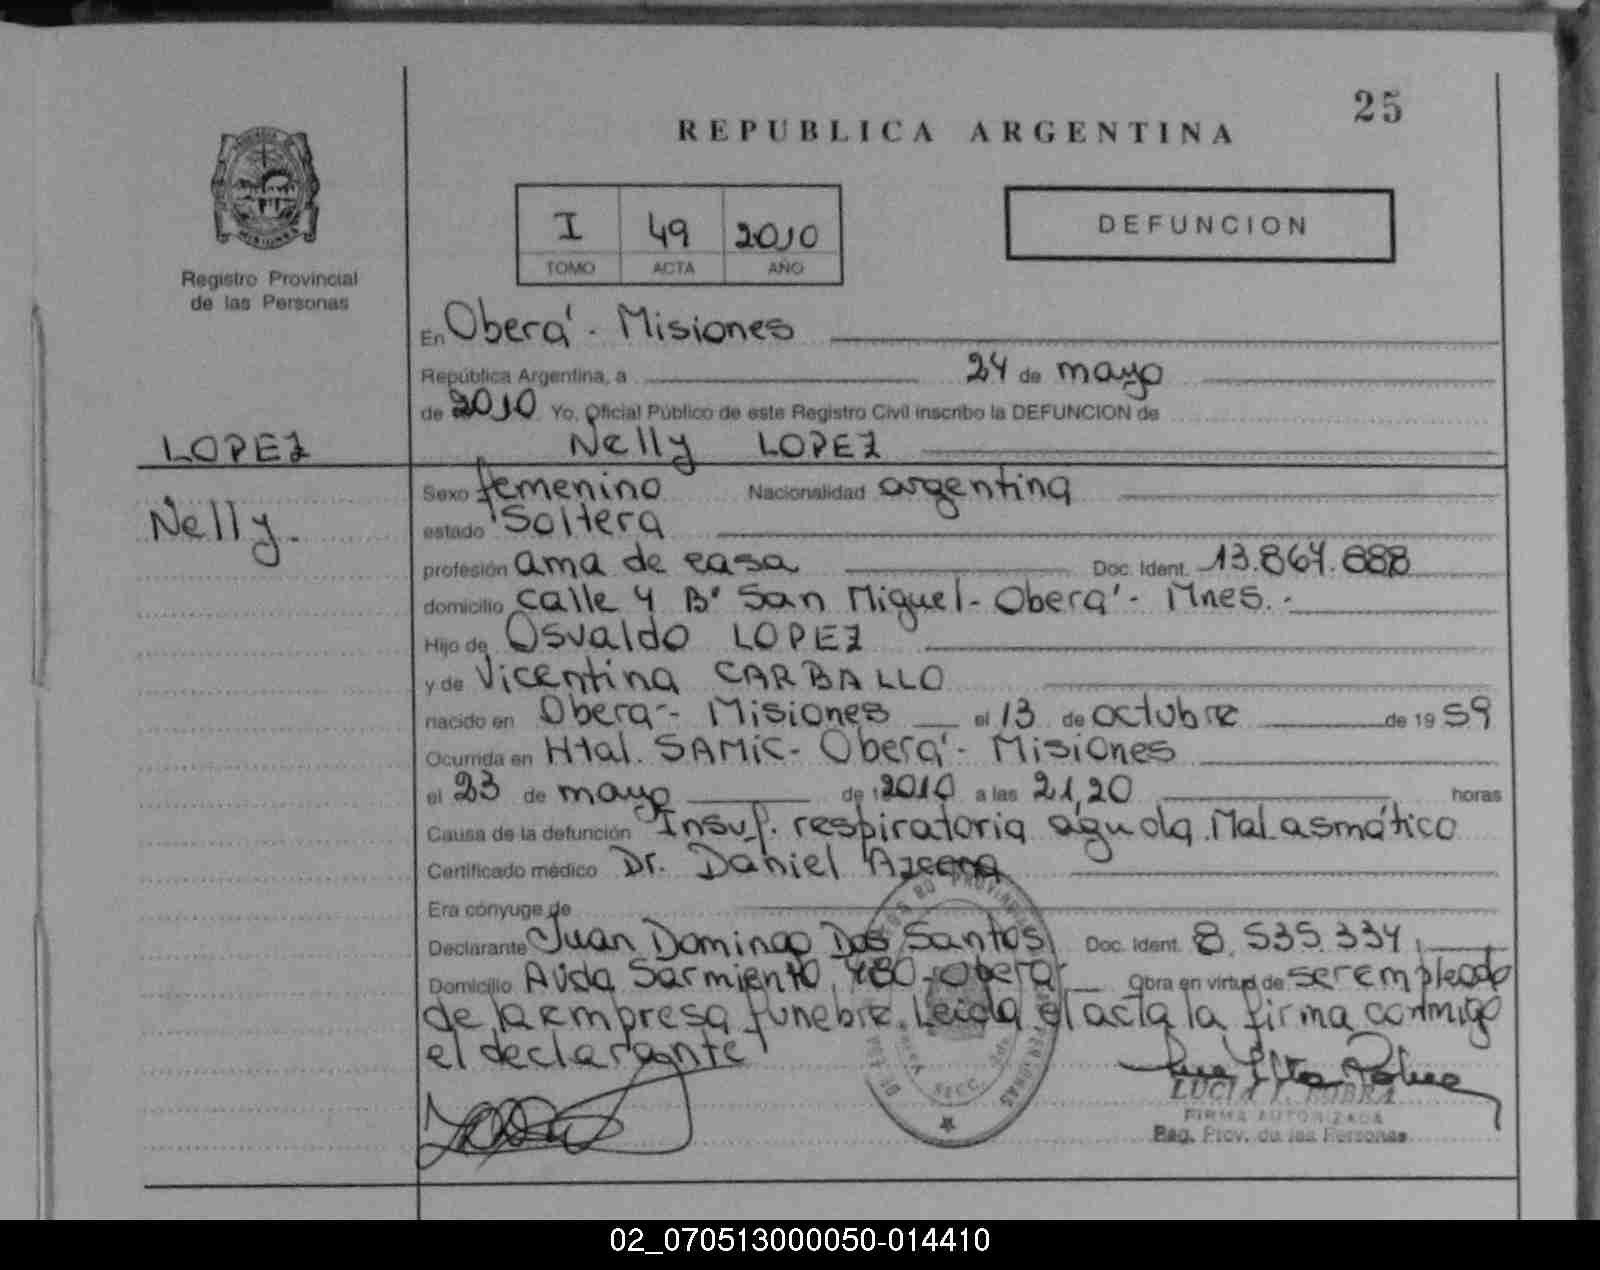 25
REPUBLICA ARGENTINA
MISIONES
Registro Provincial
de las Personas
I 49 2010
TOMO ACTA AÑO
DEFUNCION
En Oberá - Misiones
República Argentina, a 24 de mayo
de 2010 Yo, Oficial Público de este Registro Civil inscribo la DEFUNCION de
LOPEZ
Nelly LOPEZ
Nelly.
Sexo femenino Nacionalidad argentina
estado Soltera
profesión ama de casa Doc. Ident. 13.867.888
domicilio calle 4 Bº San Miguel - Oberá - Mnes. -
Hijo de Osvaldo LOPEZ
y de Vicentina CARBALLO
nacido en Oberá - Misiones el 13 de octubre de 1959
Ocurrida en Htal. SAMIC - Oberá - Misiones
el 23 de mayo de 2010 a las 21,20 horas
Causa de la defunción Insuf. respiratoria aguda. Mal asmático
Certificado médico Dr. Daniel
Era cónyuge de
Declarante Juan Domingo Dos Santos Doc. Ident. 8.535.334
Domicilio Avda Sarmiento 480 - Oberá - Obra en virtud de ser empleado
de la empresa funebre. Leida el acta la firma conmigo
el declarante
LUCIA I. ROBRA
FIRMA AUTORIZADA
Reg. Prov. de las Personas
02_070513000050-014410